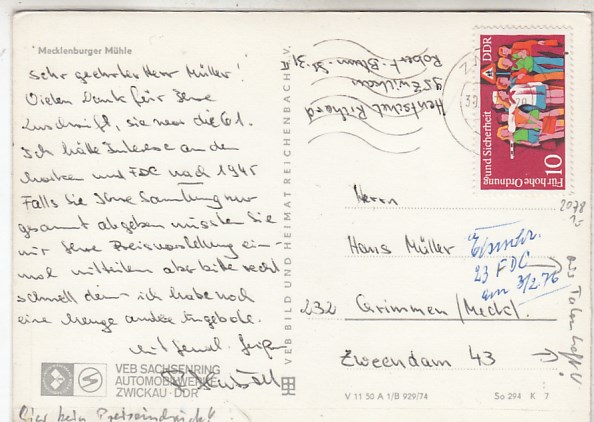 Mecklenburger Mühle
Sehr geehrter Herr Müller!
Vielen Dank für Ihre
Zuschrift, sie war die 61.
Ich hätte Interesse an den
Marken und FDC nach 1945
Falls Sie Ihre Sammlung nur
gesamt abgeben müssten Sie
mir Ihre Preisvorstellung ein-
mal mitteilen aber bitte recht
schnell denn ich habe noch
eine Menge andere Angebote.
Mit
VEB SACHSENRING
AUTOMOBILWERKE
ZWICKAU · DDR
Hier kein
VEB BILD UND HEIMAT REICHENBACH V.
Hentschel Richard
95 Zwickau
Robert-Blum-Str. 31
DDR
Für hohe Ordnung
und Sicherheit
10
2078
Herrn
Hans Müller
232 Grimmen (Meckl.)
Zweendam 43
23 FDC
am 3/2.76
V 11 50 A 1/B 929/74
So 294 K 7